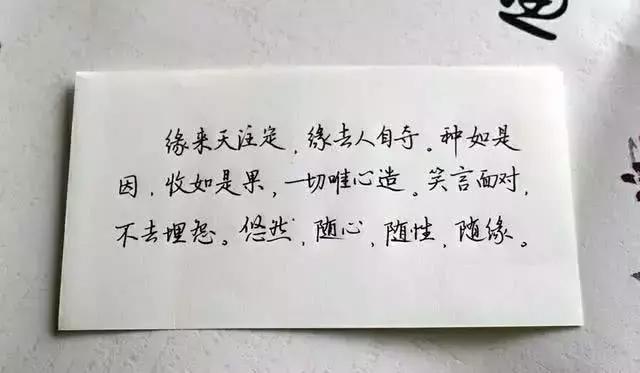 缘来天注定,缘去人自夺。种如是
因,收如是果,一切唯心造。笑言面对,
不去埋怨。悠然,随心,随性,随缘。